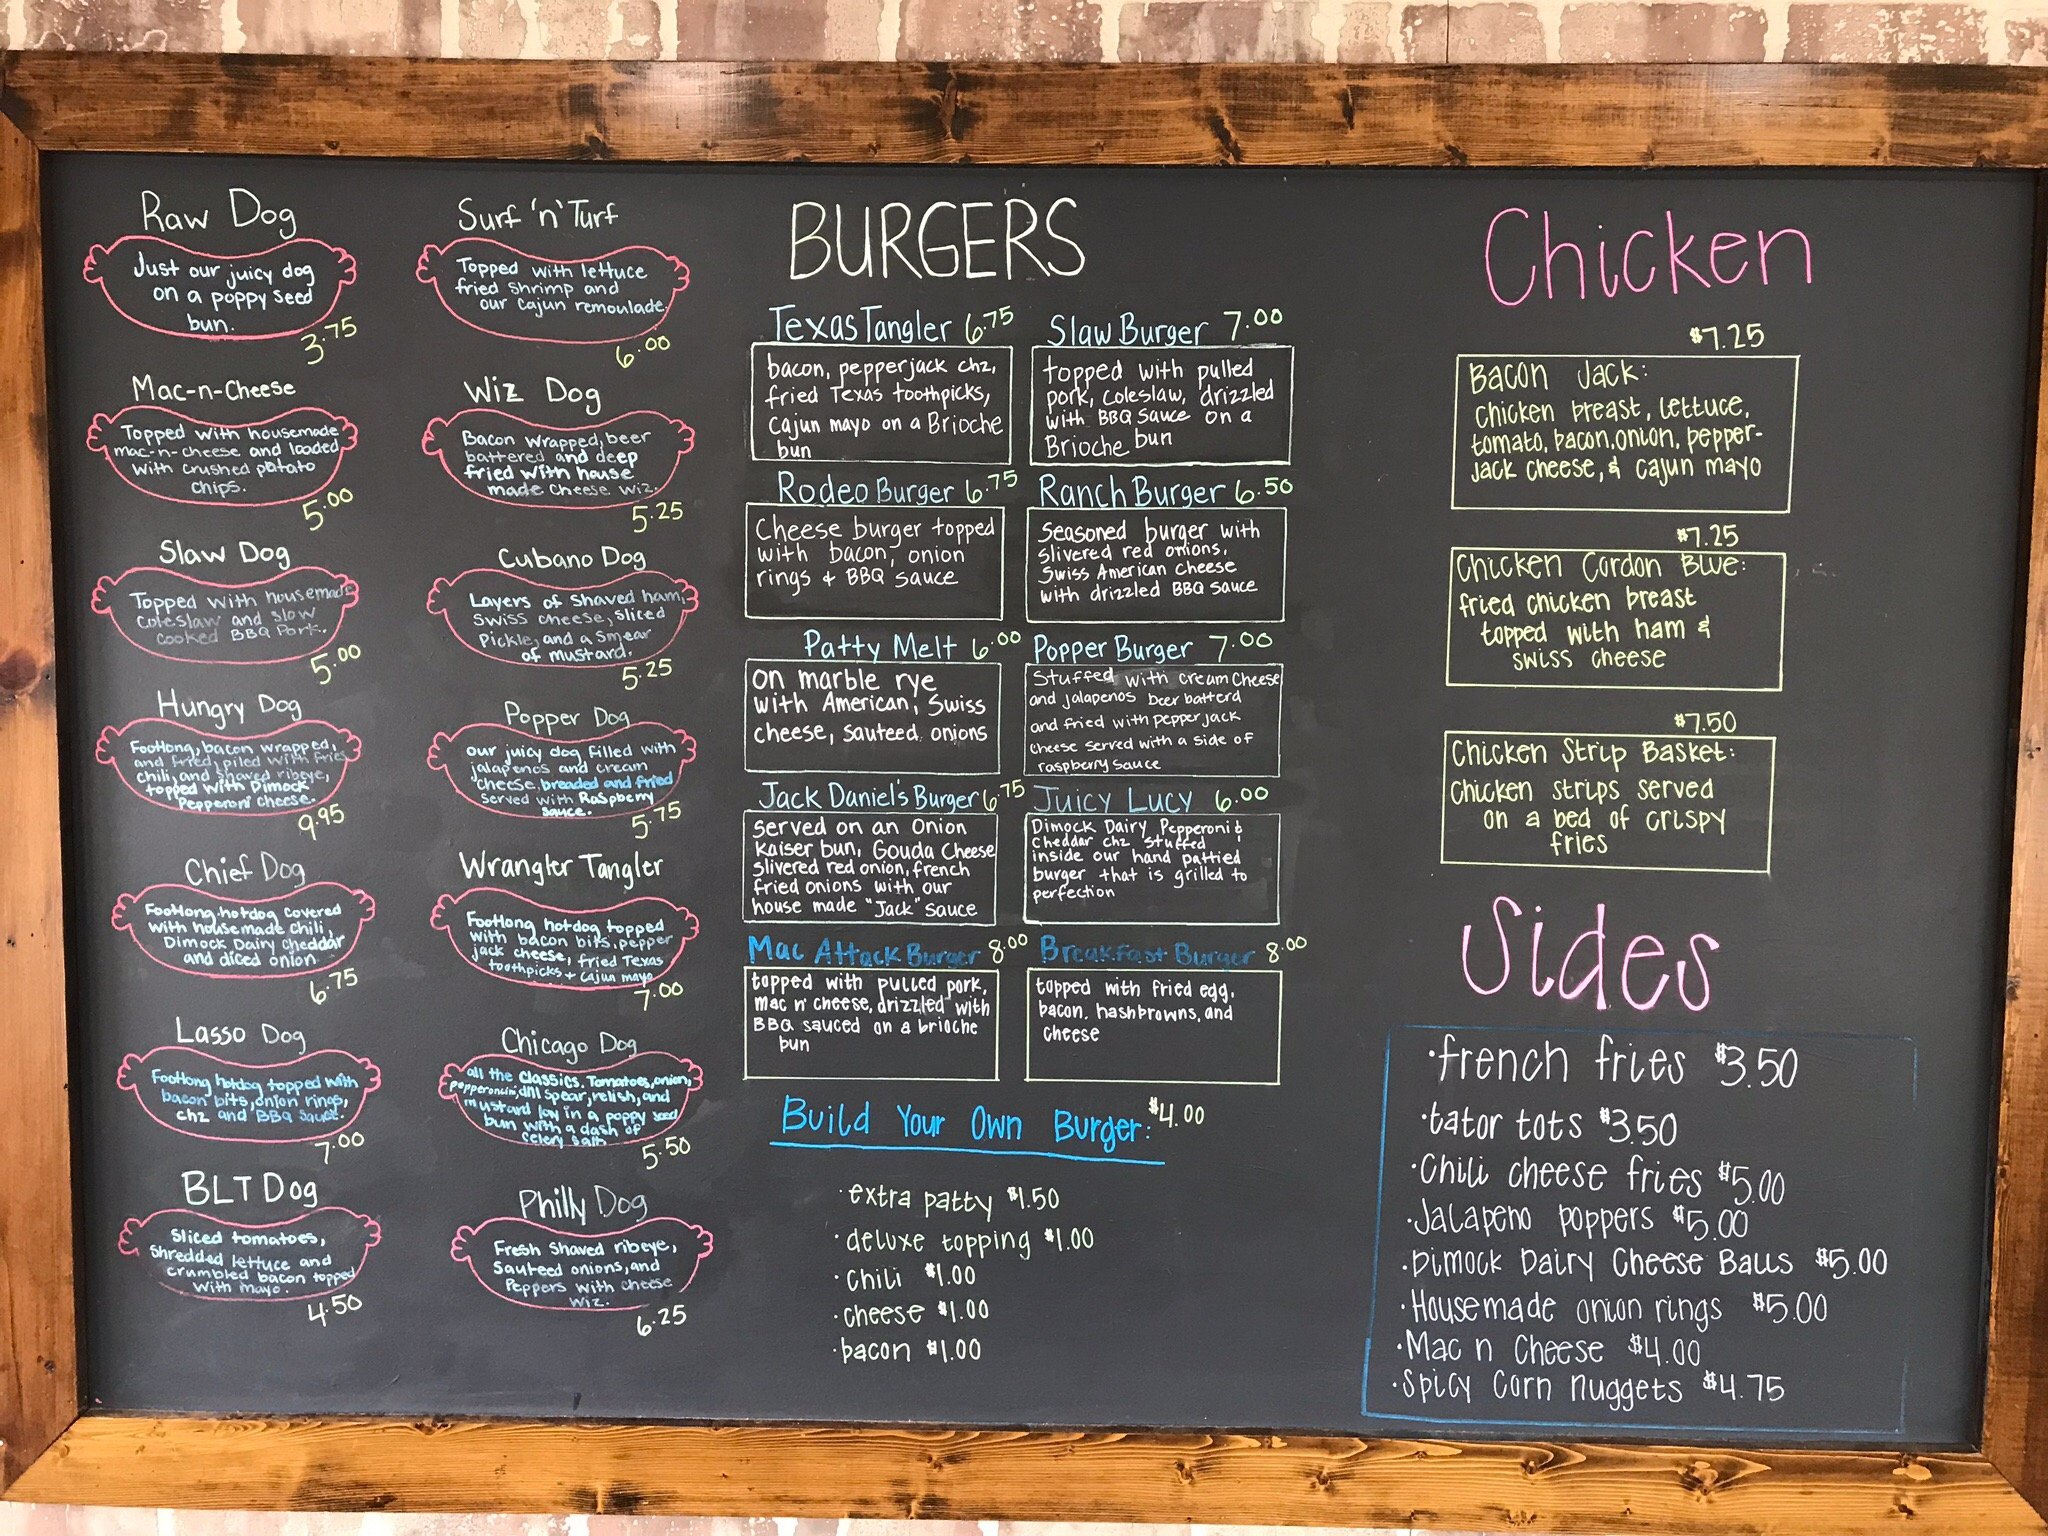 Raw Dog
Just our juicy dog
on a poppy seed
bun.
3.75
Mac-n-Cheese
Topped with housemade
mac-n-cheese and loaded
with crushed potato
chips.
5.00
Slaw Dog
Topped with housemade
coleslaw and slow
cooked BBQ Pork.
5.00
Hungry Dog
Footlong, bacon wrapped,
and fried, piled with fries
chili, and shaved ribeye,
topped with Dimock
Pepperoni cheese.
9.95
Chief Dog
Footlong hotdog covered
with housemade chili,
Dimock Dairy cheddar
and diced onion
6.75
Lasso Dog
Footlong hotdog topped with
bacon bits, onion rings,
chz and BBQ sauce.
7.00
BLT Dog
Sliced tomatoes,
shredded lettuce and
crumbled bacon topped
with mayo.
4.50
Surf 'n' Turf
Topped with lettuce
fried shrimp and
our cajun remoulade.
6.00
Wiz Dog
Bacon wrapped, beer
battered and deep
fried with house
made cheese wiz.
5.25
Cubano Dog
Layers of shaved ham,
swiss cheese, sliced
Pickle, and a smear
of mustard.
5.25
Popper Dog
our juicy dog filled with
jalapenos and cream
cheese, breaded and fried
served with Raspberry
sauce.
5.75
Wrangler Tangler
Footlong hotdog topped
with bacon bits, pepper
jack cheese, fried Texas
toothpicks + Cajun mayo
7.00
Chicago Dog
all the classics. Tomatoes, onion,
pepperoncini, dill spear, relish, and
mustard lay in a poppy seed
bun with a dash of
celery salt
5.50
Philly Dog
Fresh shaved ribeye,
sauteed onions, and
Peppers with cheese
wiz.
6.25
BURGERS
Texas Tangler 6.75
bacon, pepperjack chz,
fried Texas toothpicks,
Cajun mayo on a Brioche
bun
Rodeo Burger 6.75
Cheese burger topped
with bacon, onion
rings & BBQ sauce
Patty Melt 6.00
on marble rye
with American, Swiss
cheese, sauteed onions
Jack Daniel's Burger 6.75
served on an Onion
kaiser bun, Gouda Cheese
slivered red onion, french
fried onions with our
house made "Jack" sauce
Mac Attack Burger 8.00
topped with pulled pork,
mac n' cheese, drizzled with
BBQ sauced on a brioche
bun
Slaw Burger 7.00
topped with pulled
pork, coleslaw, drizzled
with BBQ sauce on a
Brioche bun
Ranch Burger 6.50
seasoned burger with
slivered red onions,
Swiss American cheese
with drizzled BBQ sauce
Popper Burger 7.00
Stuffed with cream cheese
and jalapenos beer batterd
and fried with pepper jack
cheese served with a side of
raspberry sauce
Juicy Lucy 6.00
Dimock Dairy Pepperoni &
Cheddar chz stuffed
inside our hand pattied
burger that is grilled to
perfection
Breakfast Burger 8.00
topped with fried egg,
bacon, hashbrowns, and
cheese
Build Your Own Burger: $4.00
· extra patty $1.50
· deluxe topping $1.00
· chili $1.00
· cheese $1.00
· bacon $1.00
Chicken
$7.25
Bacon Jack:
Chicken breast, lettuce,
tomato, bacon, onion, pepper-
jack cheese, & cajun mayo
$7.25
Chicken Cordon Blue:
fried chicken breast
topped with ham &
swiss cheese
$7.50
Chicken Strip Basket:
Chicken strips served
on a bed of crispy
fries
Sides
· french fries $3.50
· tator tots $3.50
· Chili cheese fries $5.00
· Jalapeno poppers $5.00
· Dimock Dairy Cheese Balls $5.00
· Housemade onion rings $5.00
· Mac n Cheese $4.00
· Spicy Corn nuggets $4.75